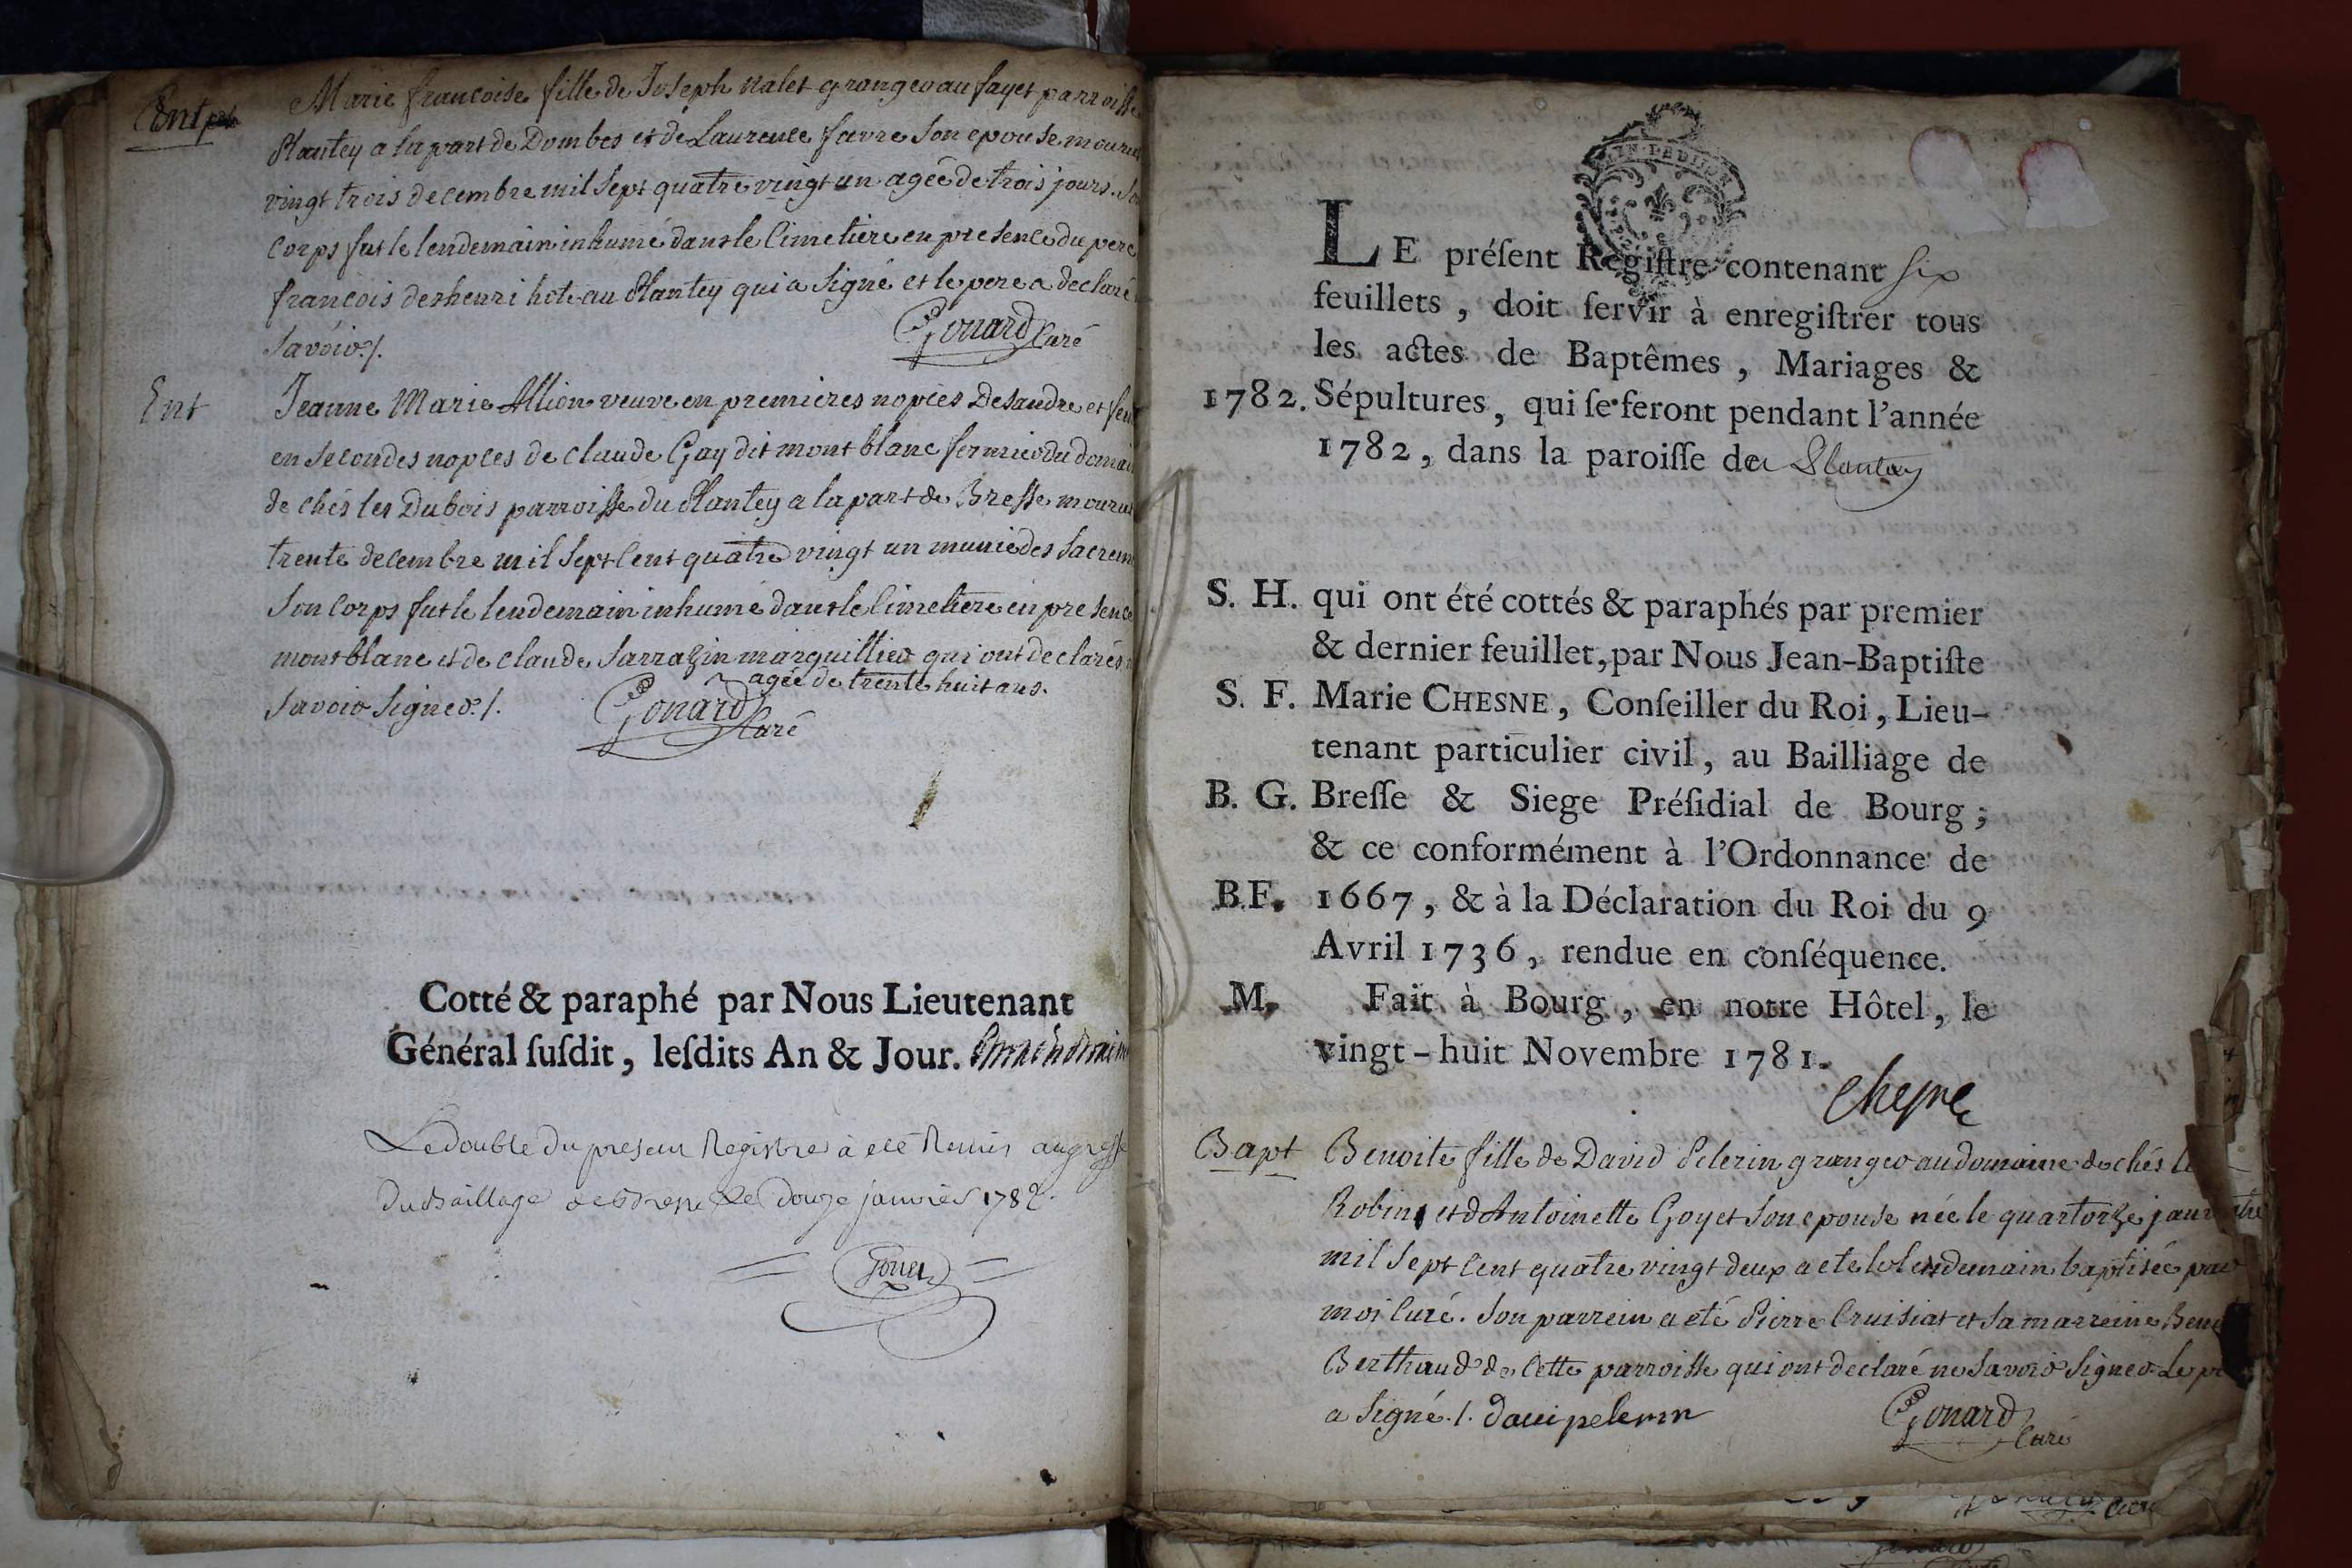 Ent
Marie francoise fille de Joseph Nalet granger au fayet parroisse
Plantey a la part de Dombes et de Laurence favre son epouse mourut
vingt trois decembre mil sept quatre vingt un agée de trois jours. Son
corps fut le lendemain inhumé dans le Cimetiere en presence du pere
francois deshenri hote au Plantey qui a signé et le pere a declaré
savoir ./.
Gonard Curé
Ent
Jeanne Marie Allion veuve en premieres nopces Desandre et
en secondes nopces de claude Gay dit mont blanc fermier du domai
de chés les Dubois parroisse du Plantey a la part de Bresse mourut
trente decembre mil sept cent quatre vingt un munie des sacrem
Son corps fut le lendemain inhumé dans le Cimetiere en presence
mont blanc et de claude Sarrazin marguillier qui ont declarés
agée de trente huit ans.
savoir signer ./.
Gonard Curé
Cotté & paraphé par Nous Lieutenant
Général ſuſdit, leſdits An & Jour.
Le double du present Registre à eté Remis au greffe
Du Baillage de Bresse le Douze janvier 1782.
LE préſent Regiſtre contenant six
feuillets, doit ſervir à enregiſtrer tous
les actes de Baptêmes, Mariages &
1782. Sépultures, qui ſe feront pendant l'année
1782, dans la paroiſſe de Plantay
S. H. qui ont été cottés & paraphés par premier
& dernier feuillet, par Nous Jean-Baptiſte
S. F. Marie CHESNE, Conſeiller du Roi, Lieu-
tenant particulier civil, au Bailliage de
B. G. Breſſe & Siege Préſidial de Bourg;
& ce conformément à l'Ordonnance de
B.F. 1667, & à la Déclaration du Roi du 9
Avril 1736, rendue en conſéquence.
M. Fait à Bourg, en notre Hôtel, le
vingt-huit Novembre 1781.
Chesne
Bapt Benoite fille de David Pelerin granger au domaine de chés le
Robin et d'Antoinette Goyet son epouse née le quartorze janv
mil sept cent quatre vingt deux a eté le lendemain baptisée par
moi Curé. Son parrein a eté Pierre Cruisiat et sa marreine Beno
Berthaud de cette parroisse qui ont declaré ne savoir signer. Le pe
a signé ./. davi pelerin
Gonard Curé